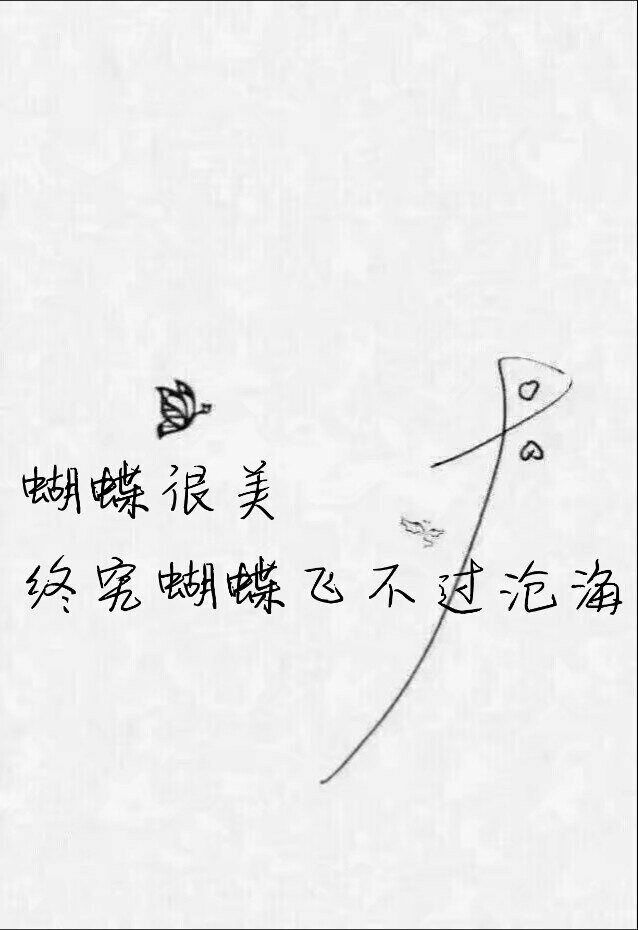 蝴蝶很美
终究蝴蝶飞不过沧海